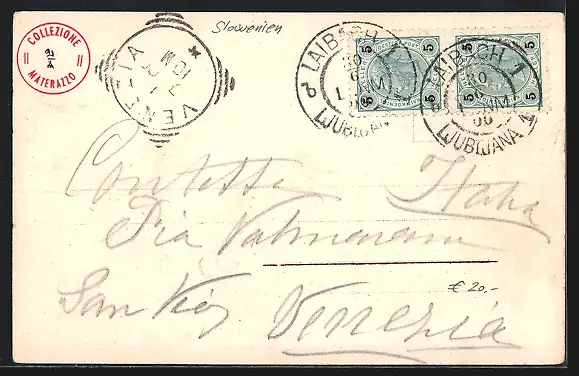 COLLEZIONE
MATERAZZO
VENEZIA
10 M
Slowenien
LAIBACH 1
LJUBLJANA
5 5
5 5
LAIBACH 1
LJUBLJANA 1
5 5
5 5
Contessa
Italia
Pia Valmarana
San Vio
Venezia
€ 20,-